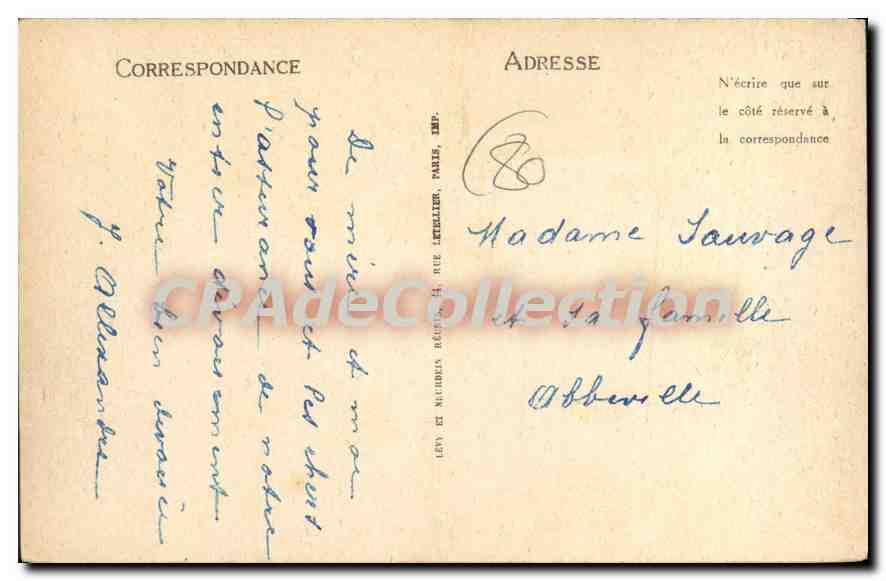 CORRESPONDANCE
De mère et moi
pour vous et les chers
l'assurance de notre
entier dévouement
Votre bien dévouée
J. Alexandre
LÉVY ET NEURDEIN RÉUNIS, 44, RUE LETELLIER, PARIS, IMP.
ADRESSE
N'écrire que sur
le côté réservé à
la correspondance
80
Madame Sauvage
et sa famille
Abbeville
CPAdeCollection.com